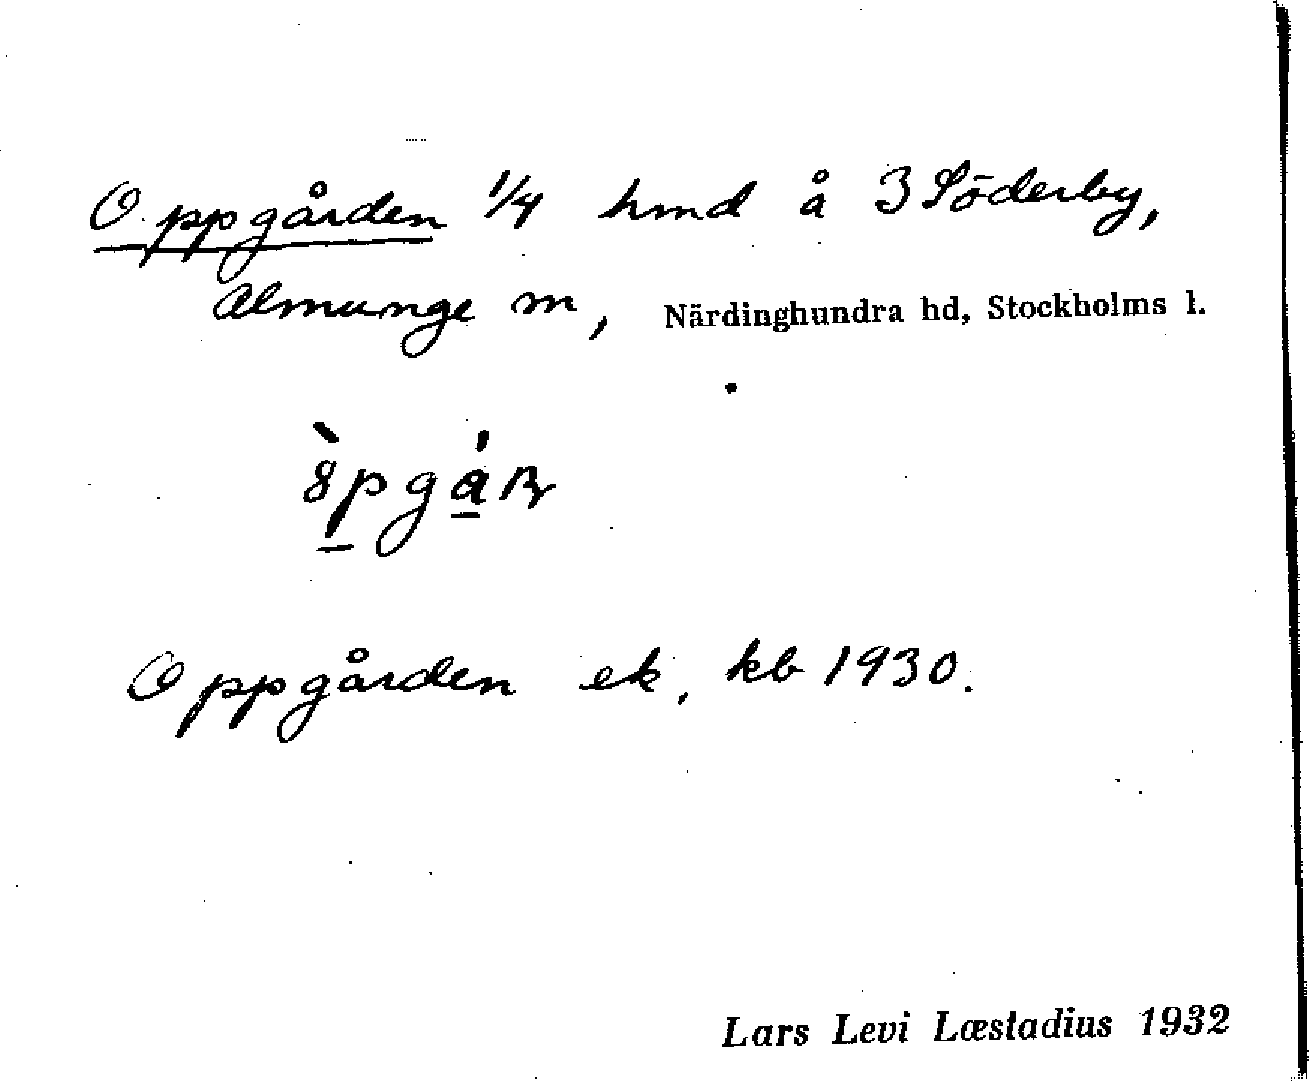 Oppgården 1/4 hmd å 3 Söderby,
Almunge sn, Närdinghundra hd, Stockholms l.
Oppgården ek, kb 1930.
Lars Levi Læstadius 1932